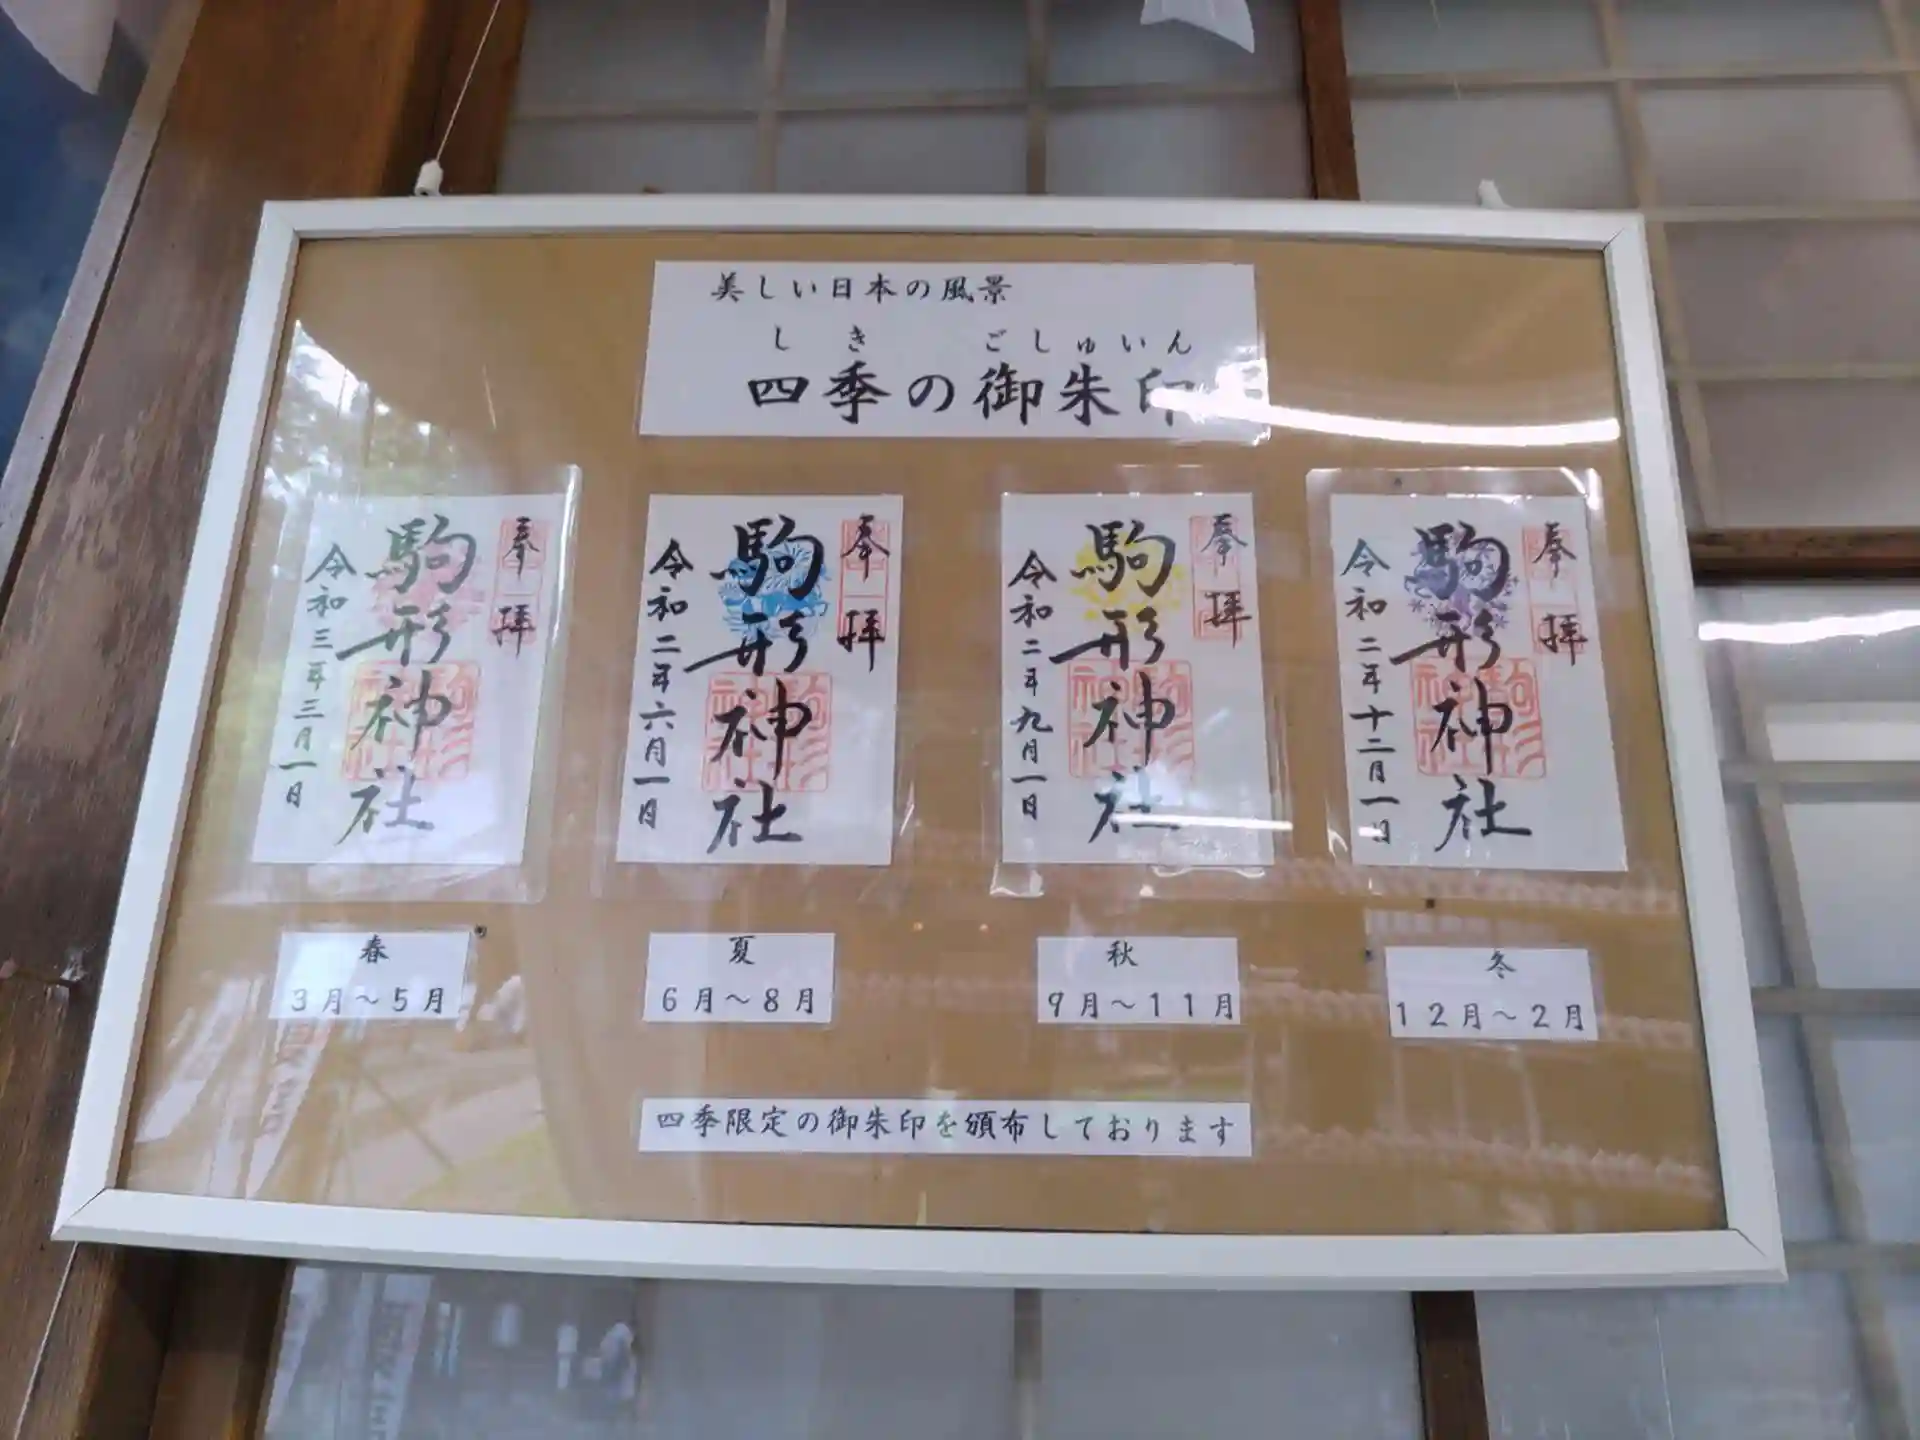 美しい日本の風景
しき ごしゅいん
四季の御朱印
奉拝
駒形神社
令和三年三月一日
奉拝
駒形神社
令和二年六月一日
奉拝
駒形神社
令和二年九月一日
奉拝
駒形神社
令和二年十二月一日
春
3月～5月
夏
6月～8月
秋
9月～11月
冬
12月～2月
四季限定の御朱印を頒布しております